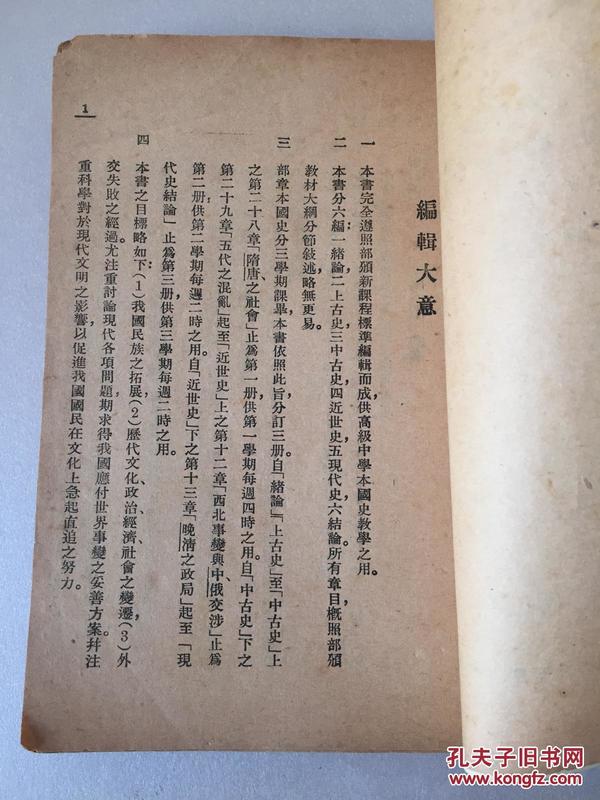 編輯大意
一 本書完全遵照部頒新課程標準編輯而成，供高級中學本國史教學之用。
二 本書分六編：一緒論，二上古史，三中古史，四近世史，五現代史，六結論，所有章目概照部頒
教材大綱分節敍述，略無更易。
三 部章本國史分三學期課畢，本書依照此旨，分訂三册。自「緒論」、「上古史」至「中古史」上
之第二十八章「隋唐之社會」止爲第一册，供第一學期每週四時之用。自「中古史」下之
第二十九章「五代之混亂」起至「近世史」上之第十二章「西北事變與中、俄交涉」止爲
第二册，供第二學期每週二時之用。自「近世史」下之第十三章「晚清之政局」起至「現
代史結論」止爲第三册，供第三學期每週二時之用。
四 本書之目標略如下：(1)我國民族之拓展，(2)歷代文化、政治、經濟、社會之變遷，(3)外
交失敗之經過。尤注重討論現代各項問題，期求得我國應付世界事變之妥善方案，幷注
重科學對於現代文明之影響，以促進我國國民在文化上急起直追之努力。
1
孔夫子旧书网
www.kongfz.com